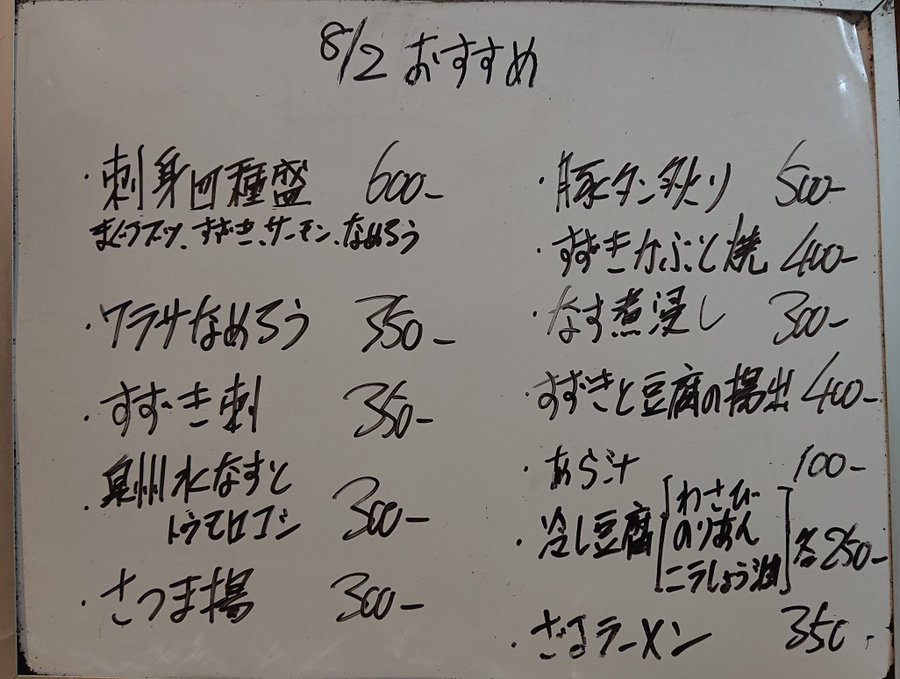 8/2 おすすめ
・刺身四種盛 600-
まぐろブツ、すずき、サーモン、なめろう
・ワラサなめろう 350-
・すずき刺 350-
・泉州水なすと
トウモロコシ 300-
・さつま揚 300-
・豚タン炙り 500-
・すずきかぶと焼 400-
・なす煮浸し 300-
・すずきと豆腐の揚出 400-
・あら汁 100-
・冷し豆腐 [わさび
のりあん
ニラしょう油] 各250-
・ざるラーメン 350-